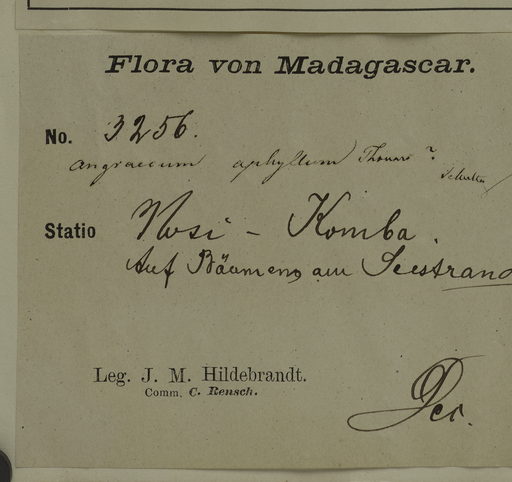 Flora von Madagascar.
No. 3256.
Angraecum aphyllum Thouars?
Statio Nosi-Komba.
Auf Bäumen am Seestrand
Leg. J. M. Hildebrandt.
Comm. C. Rensch.